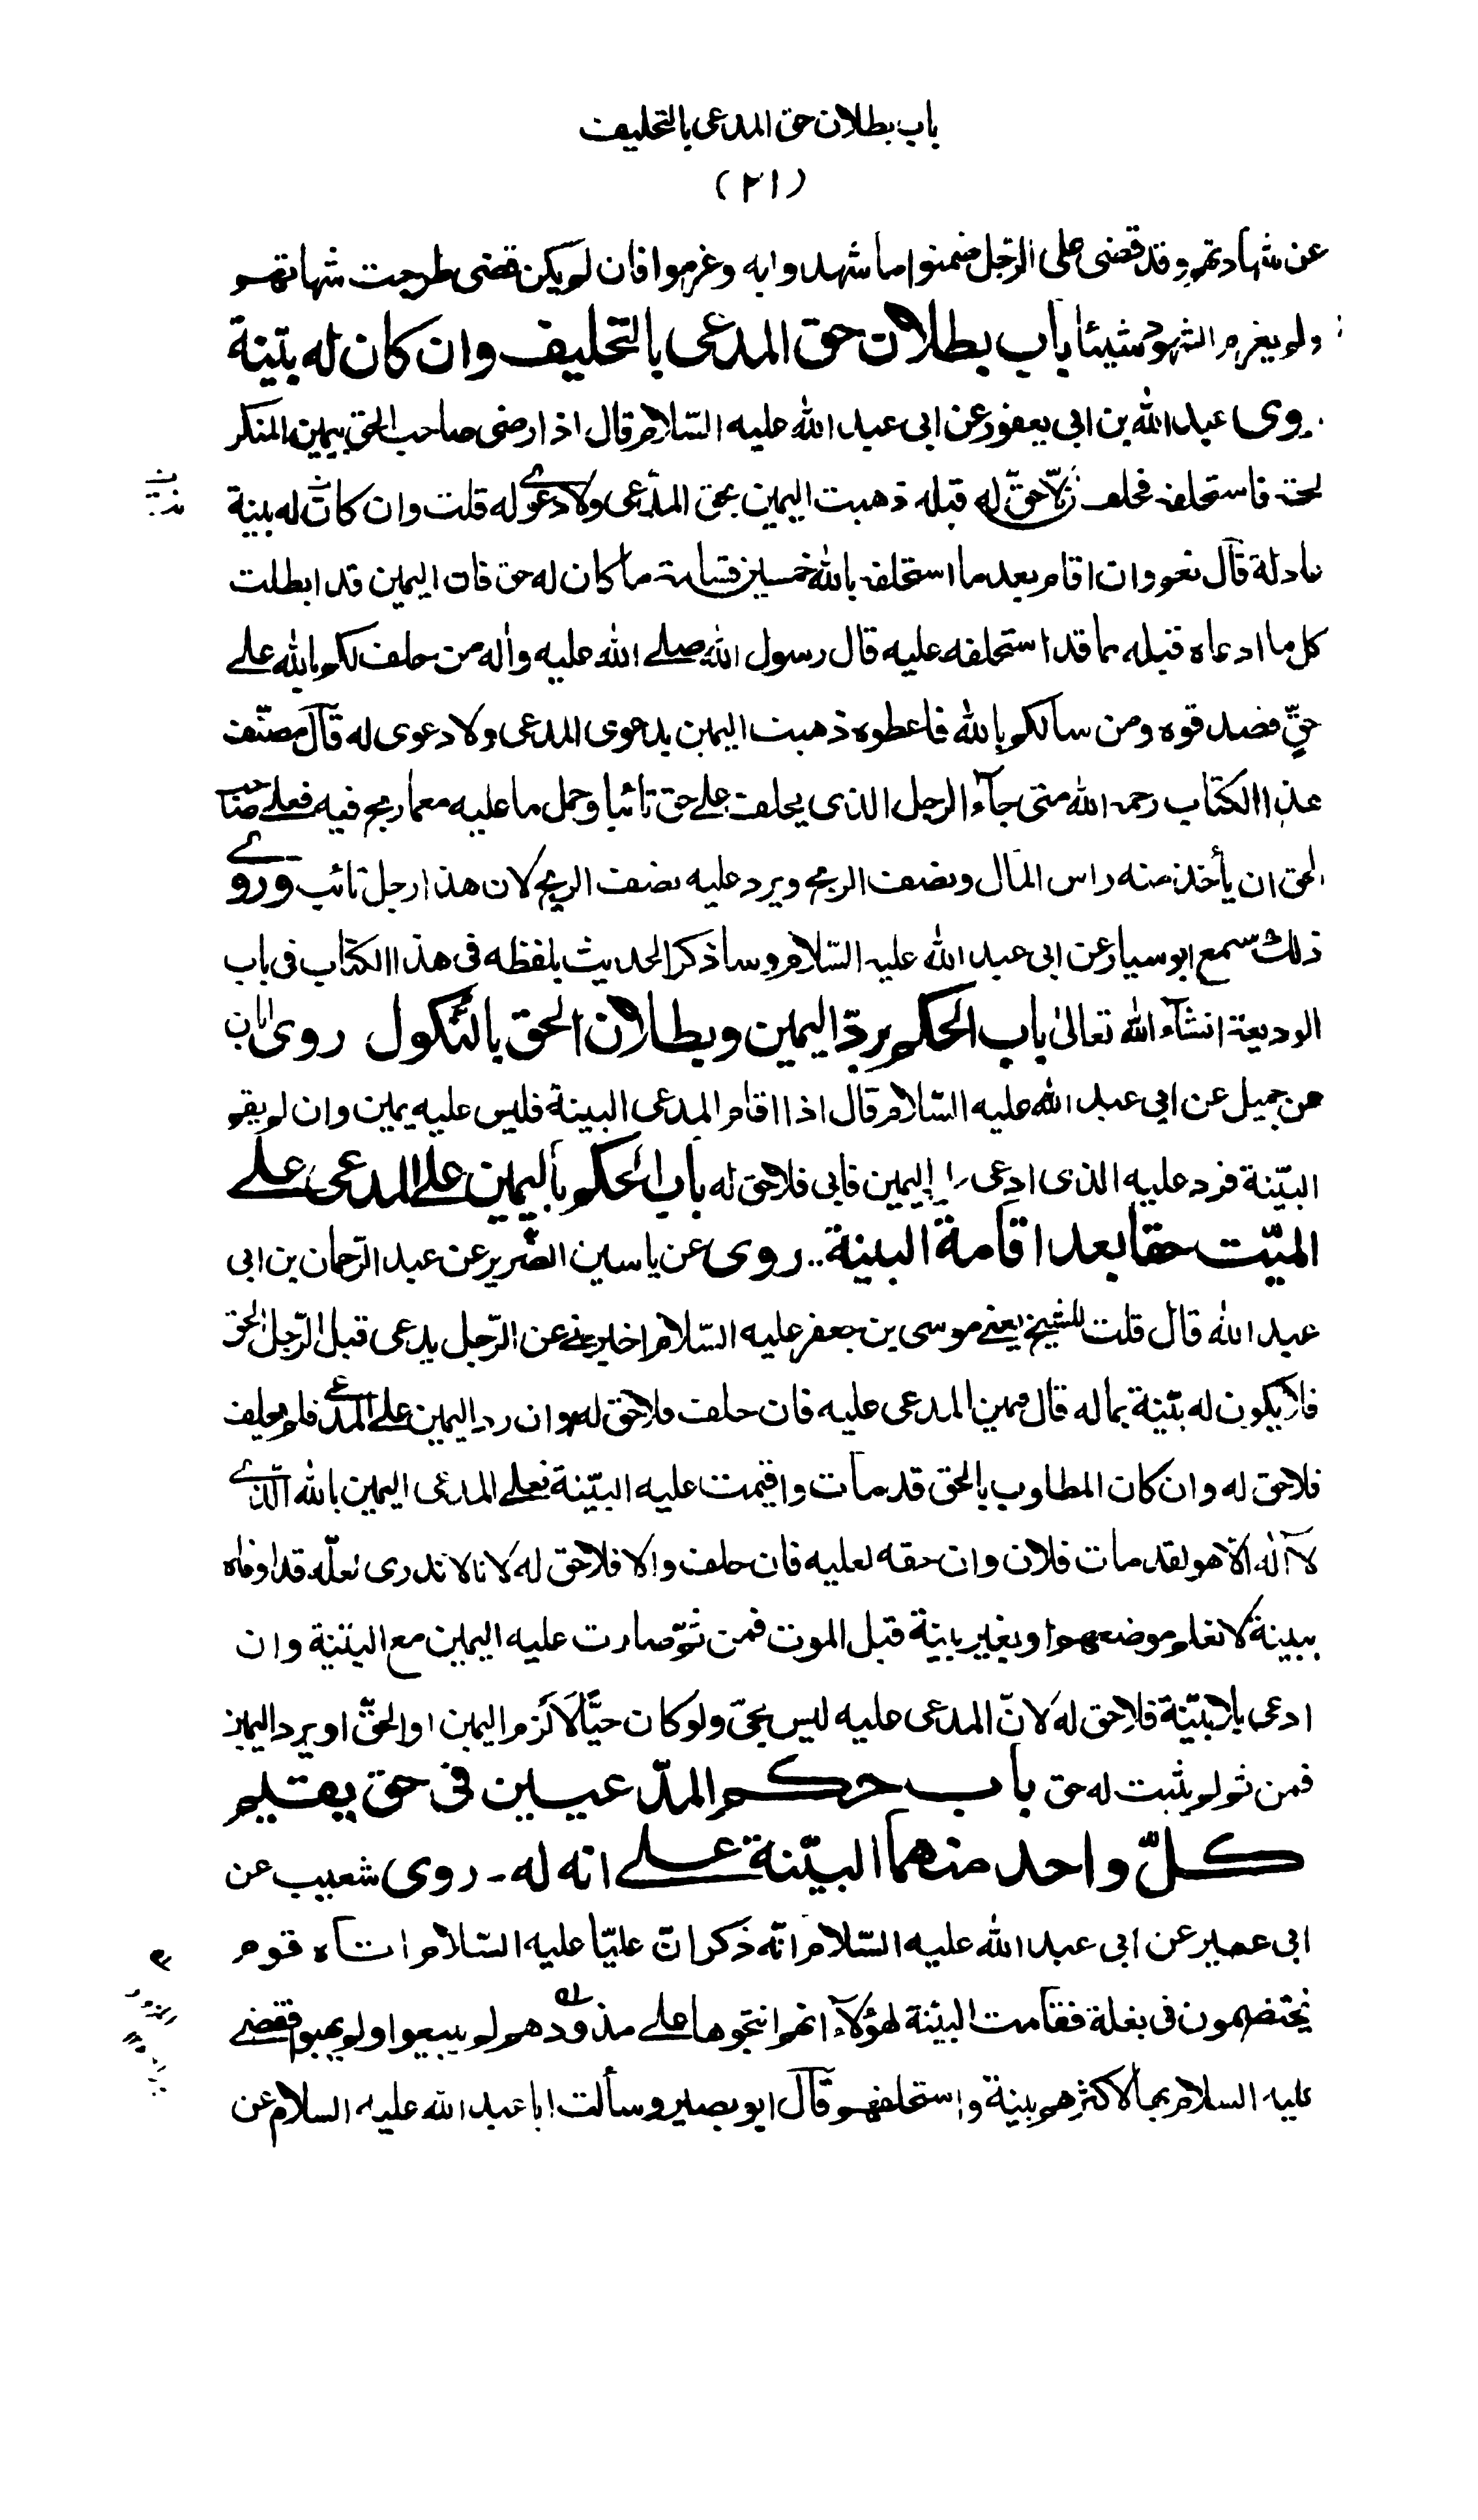 باب بطلان حق المدعى بالتحليف
(٢١)
عن شهادتهم وقد قضى على الرّجل ضمنوا ما شهدوا به وغرموا فان لم يكن قضى طرحت شهاتهم
ولم يغرم الشهود شيئا باب بطلان حق المدعى بالتحليف وان كان له بيّنة
روى عبد الله بن ابى يعفور عن ابى عبد الله عليه السّلام قال اذا رضى صاحب الحق بيمين المنكر
لحقه فاستحلفه فحلف ان لا حقّ له قبله ذهبت اليمين بحق المدّعى ولا دعوى له قلت وان كانت له بينة
عادلة قال نعم وان اقام بعد ما استحلفه بالله خمسين قسامة ما كان له حق فان اليمين قد ابطلت
كل ما ادعاه قبله مما قد استحلفه عليه قال رسول الله صلے الله عليه واٰله من حلف لكم بالله علے
حقٍّ فصدقوه ومن سالكم بالله فاعطوه ذهبت اليمين بدعوى المدعى ولا دعوى له قال مصنّف
هذا الكتاب رحمه الله متى جآء الرجل الذى يحلف علے حق تائبا وحمل ما عليه مع ما ربح فيه فعلے صاحب
الحق ان يأخذ منه راس المال ونصف الربح ويرد عليه نصف الربح لان هذا رجل تائب وروے
ذلك مسمع ابو سيار عن ابى عبد الله عليه السّلام وساذكر الحديث بلفظه فى هذا الكتاب فى باب
الوديعة انشآء الله تعالىٰ باب الحكم بردّ اليمين وبطلان الحق بالنّكول روى ابان
عن جميل عن ابى عبد الله عليه السّلام قال اذا اقام المدعى البينة فليس عليه يمين وان لم يقم
البيّنة فرد عليه الذى ادعى اليمين فابى فلا حق له باب الحكم باليمين علے المدعى علے
الميّت حقا بعد اقامة البينة .. روى عن ياسين الضّرير عن عبد الرّحمان بن ابى
عبد الله قال قلت للشيخ يعنے موسى بن جعفر عليه السّلام اخبرنے عن الرّجل يدعى قبل الرّجل الحق
فلا يكون له بيّنة بماله قال فيمين المدعى عليه فان حلف فلا حق له وان رد اليمين علے المدعے فلم يحلف
فلا حق له وان كان المطلوب بالحق قد مات واقيمت عليه البيّنة فعلے المدعى اليمين بالله الّذے
لا اٰله الّا هو لقد مات فلان وان حقه لعليه فان حلف والا فلا حق له لانا لا ندرى لعلّه قد اوفاه
ببينة لا نعلم موضعهم او بغير بينة قبل الموت فمن ثمّ صارت عليه اليمين مع البيّنة وان
ادعى بلا بيّنة فلا حق له لانّ المدعى عليه ليس بحىّ ولو كان حيًّا لَاَلزم اليمين او الحقّ او يرد اليمين
فمن ثم لم يثبت له حق باب حكم المدّعيين فى حق يقيم
كلّ واحد منهما البيّنة علے انه له - روى شعيب عن
ابى عن ابى عبد الله عليه السّلام انّه ذكر انّ عليّا عليه السّلام اتاه قوم
يختصمون فى بغلة فقامت البيّنة لهؤلآء انهم انتجوها علے مذودهم لم يبيعوا ولم يهبوا فقضے
عليه السلام بها لاكثرهم بينة واستحلفهم قال ابو بصير وسألت ابا عبد الله عليه السلام عن